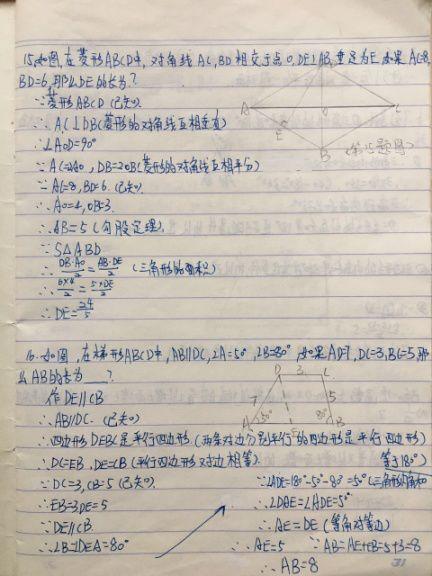 15.如图,在菱形ABCD中,对角线AC,BD相交于点O,DE⊥AB,垂足为E,如果AC=8,
BD=6,那么DE的长为?
∵菱形ABCD(已知).
∴AC⊥DB(菱形的对角线互相垂直)
∴∠AOD=90°
∵AC=2AO,DB=2OB(菱形的对角线互相平分)
∵AC=8,BD=6.(已知).
∴AO=4,OB=3.
∴AB=5(勾股定理).
∵S△ABD
∴DB·AO/2=AB·DE/2(三角形的面积)
∴6×4/2=5×DE/2
∴DE=24/5
A
O
C
E
B
(第15题图)
16.如图,在梯形ABCD中,AB∥DC,∠A=50°,∠B=80°,如果AD=7,DC=3,BC=5,那
么AB的长为___?
作DE∥CB
∵AB∥DC.(已知)
∴四边形DEBC是平行四边形.(两条对边分别平行的四边形是平行四边形)
∴DC=EB,DE=CB(平行四边形对边相等).
∵DC=3,CB=5(已知).
∴EB=3,DE=5
∵DE∥CB
∴∠B=∠DEA=80°
D
3
C
7
5
A
50°
E
80°
B
等于180°)
∵∠ADE=180°-50°-80°=50°(三角形内角和
∴∠DAE=∠ADE=50°
∴AE=DE(等角对等边)
∴AE=5
∵AB=AE+EB=5+3=8
∴AB=8